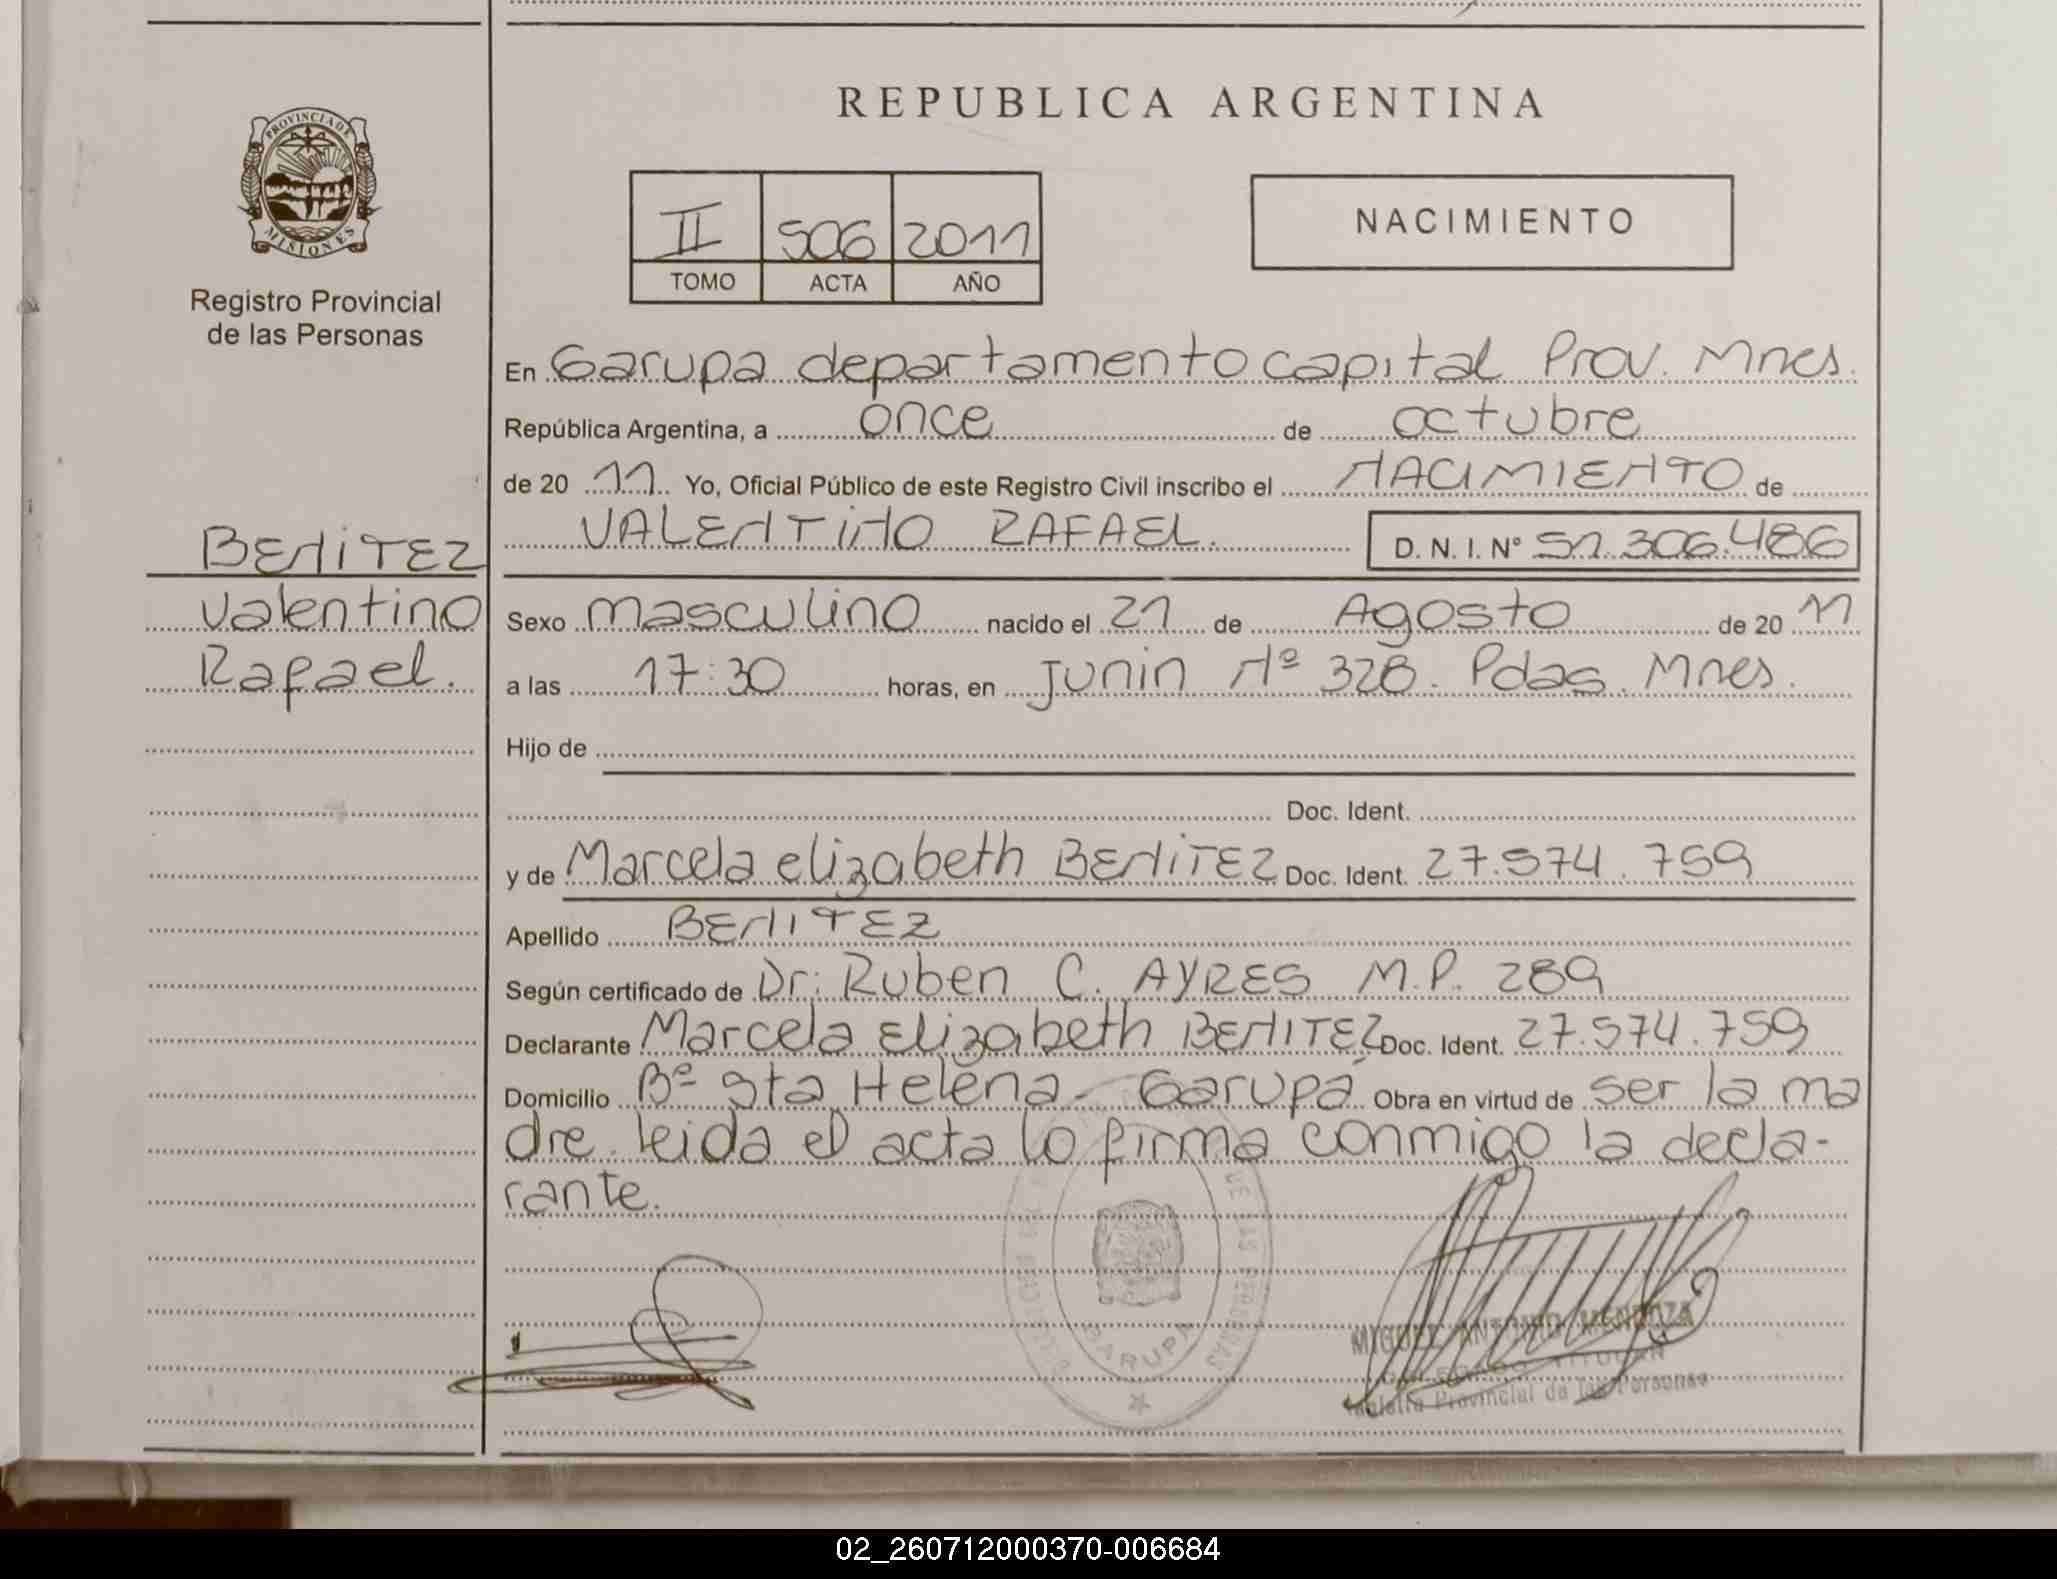 REPUBLICA ARGENTINA
PROVINCIA DE
MISIONES
Registro Provincial
de las Personas
II 506 2011
TOMO ACTA AÑO
NACIMIENTO
En Garupa departamento capital Prov. Mnes.
República Argentina, a once de octubre
de 20 11. Yo, Oficial Público de este Registro Civil inscribo el NACIMIENTO de
VALENTINO RAFAEL. D. N. I. Nº 51.306.486
BENITEZ
Valentino
Rafael.
Sexo masculino nacido el 21 de Agosto de 20 11
a las 17:30 horas, en Junin Nº 328. Pdas. Mnes.
Hijo de
Doc. Ident.
y de Marcela elizabeth BENITEZ Doc. Ident. 27.574.759
Apellido BENITEZ
Según certificado de Dr: Ruben C. AYRES M.P. 289
Declarante Marcela Elizabeth BENITEZ Doc. Ident. 27.574.759
Domicilio Bº Sta Helena - Garupá Obra en virtud de ser la ma
dre. leida el acta lo firma conmigo la decla-
rante.
GARUPA
MIGUEL ANTONIO MENDOZA
Provincial de las Personas
02_260712000370-006684